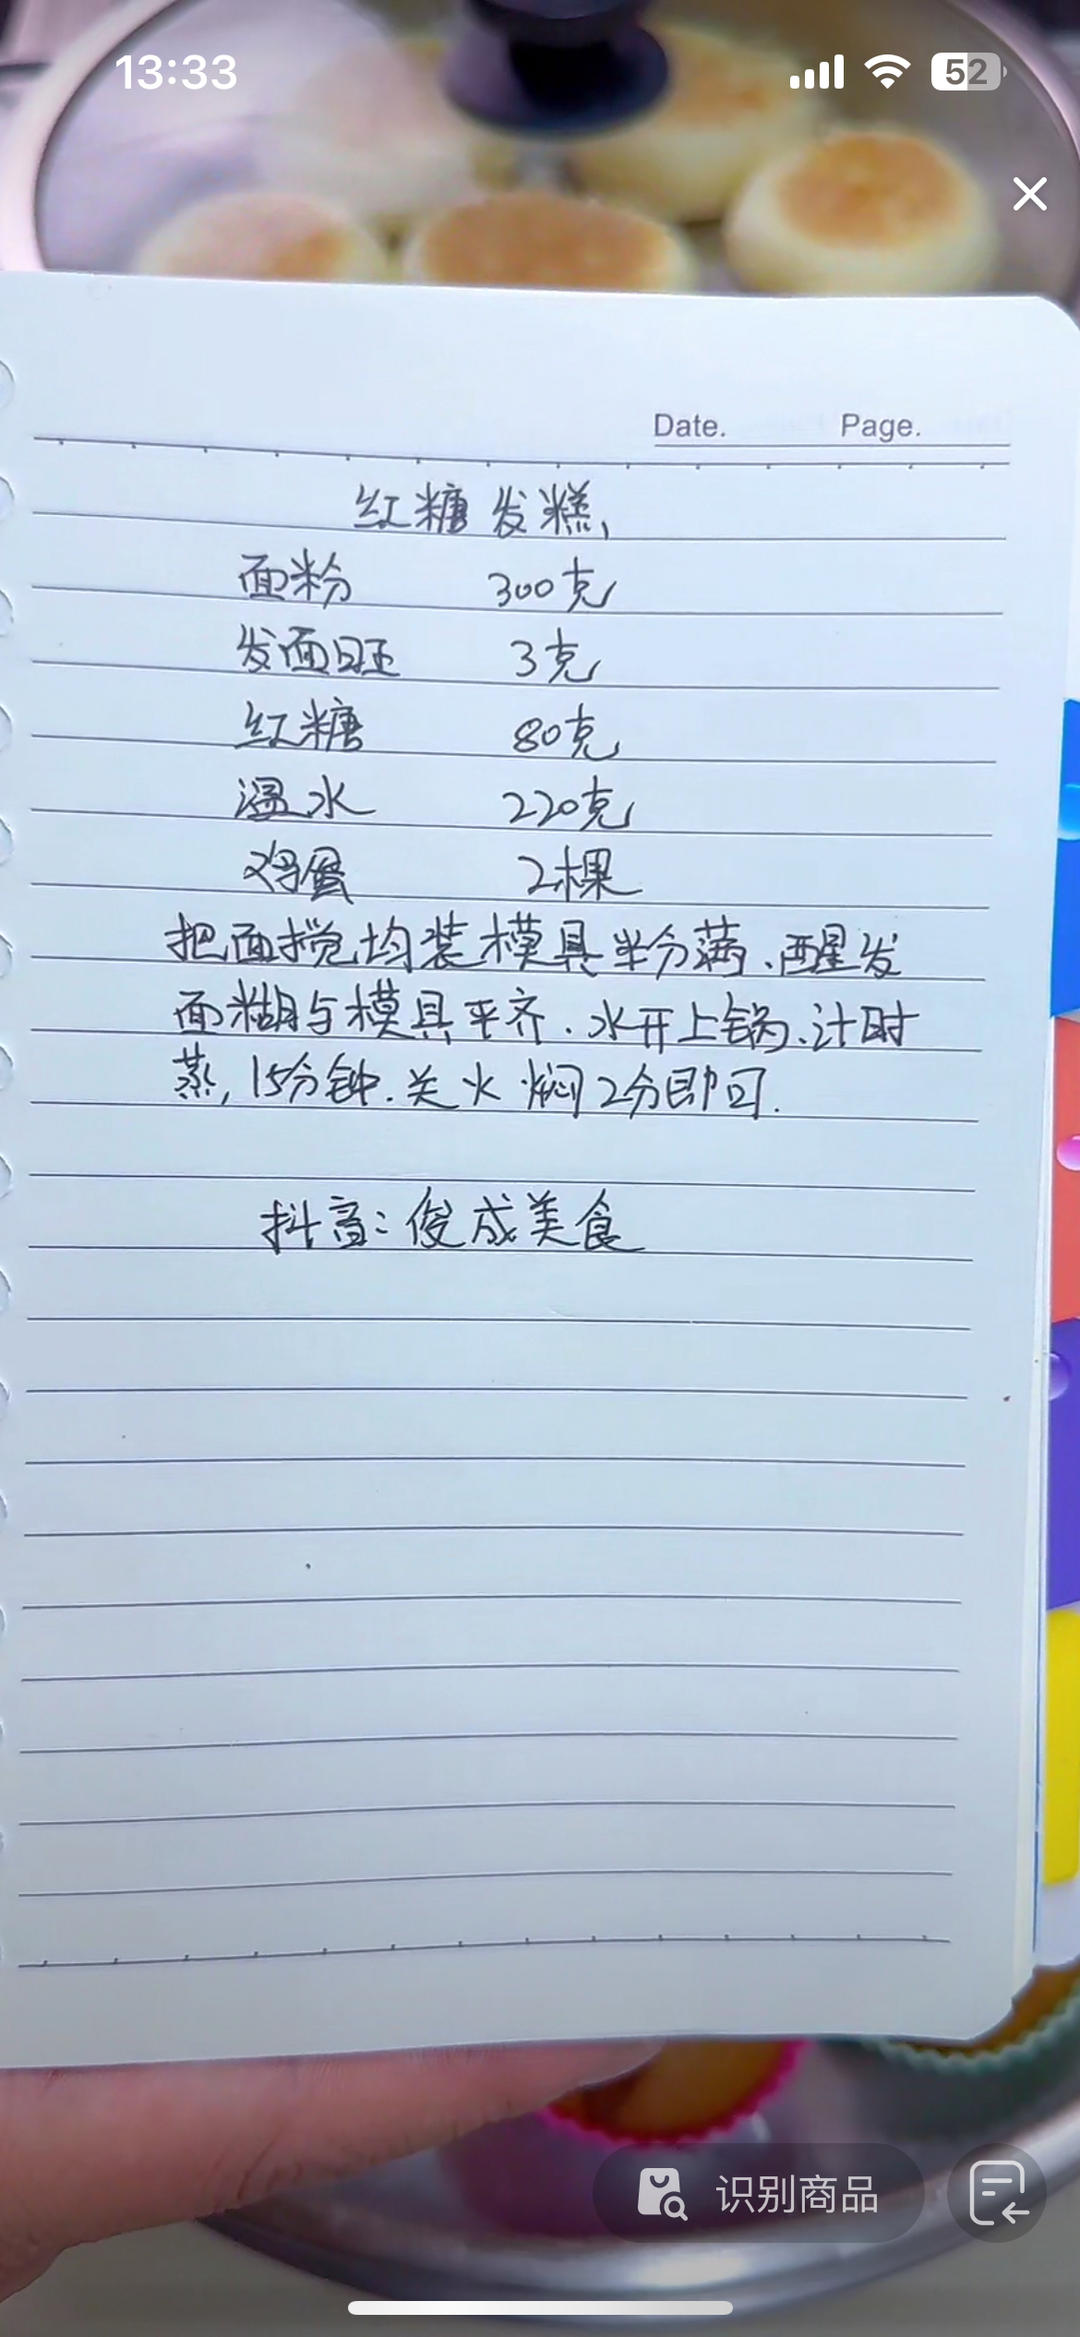 13:33
52
Date. Page.
红糖发糕,
面粉 300克
发面旺 3克
红糖 80克
温水 220克
鸡蛋 2棵
把面搅均装模具半分满、醒发
面糊与模具平齐.水开上锅、计时
蒸,15分钟.关火焖2分即可.
抖音:俊成美食
识别商品